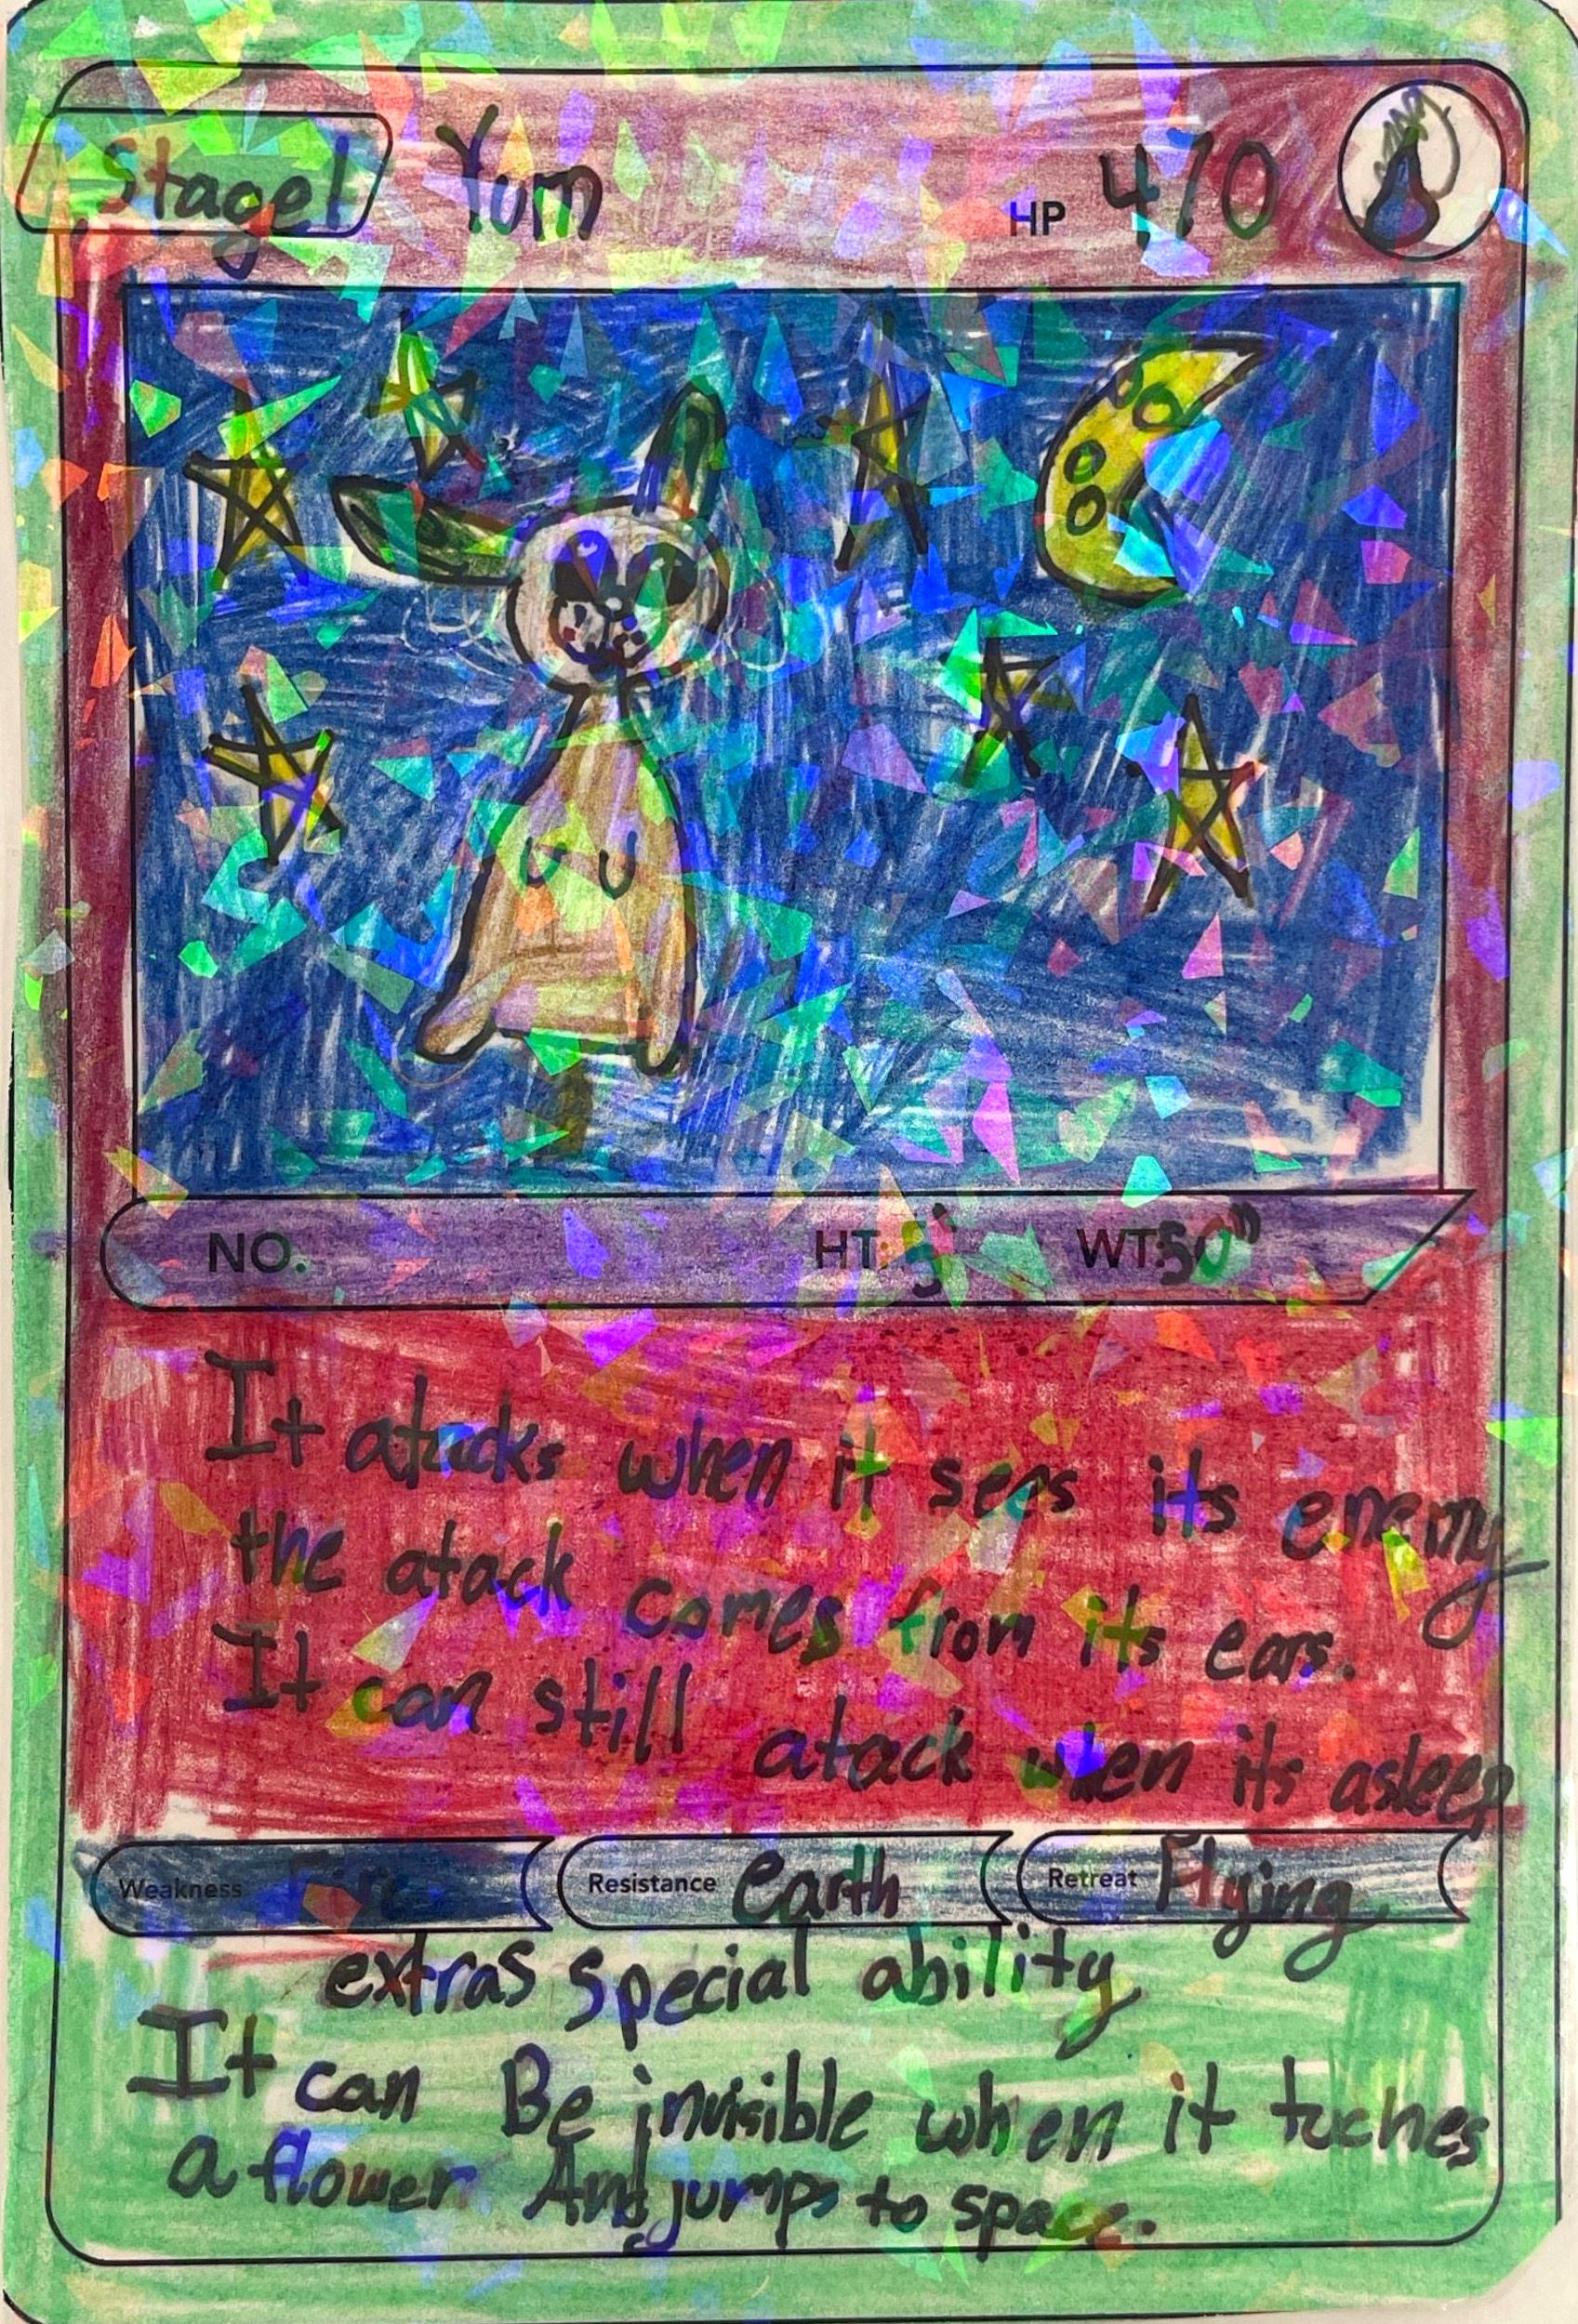 Stage1 Yum HP 470
NO. HT: 5' WT: 50"
It atacks when it sees its enemy
the atack comes from its ears.
It can still atack when its asleep
Weakness Fire Resistance earth Retreat Flying
extras special ability
It can Be invisible when it tuches
a flower And jumps to space.